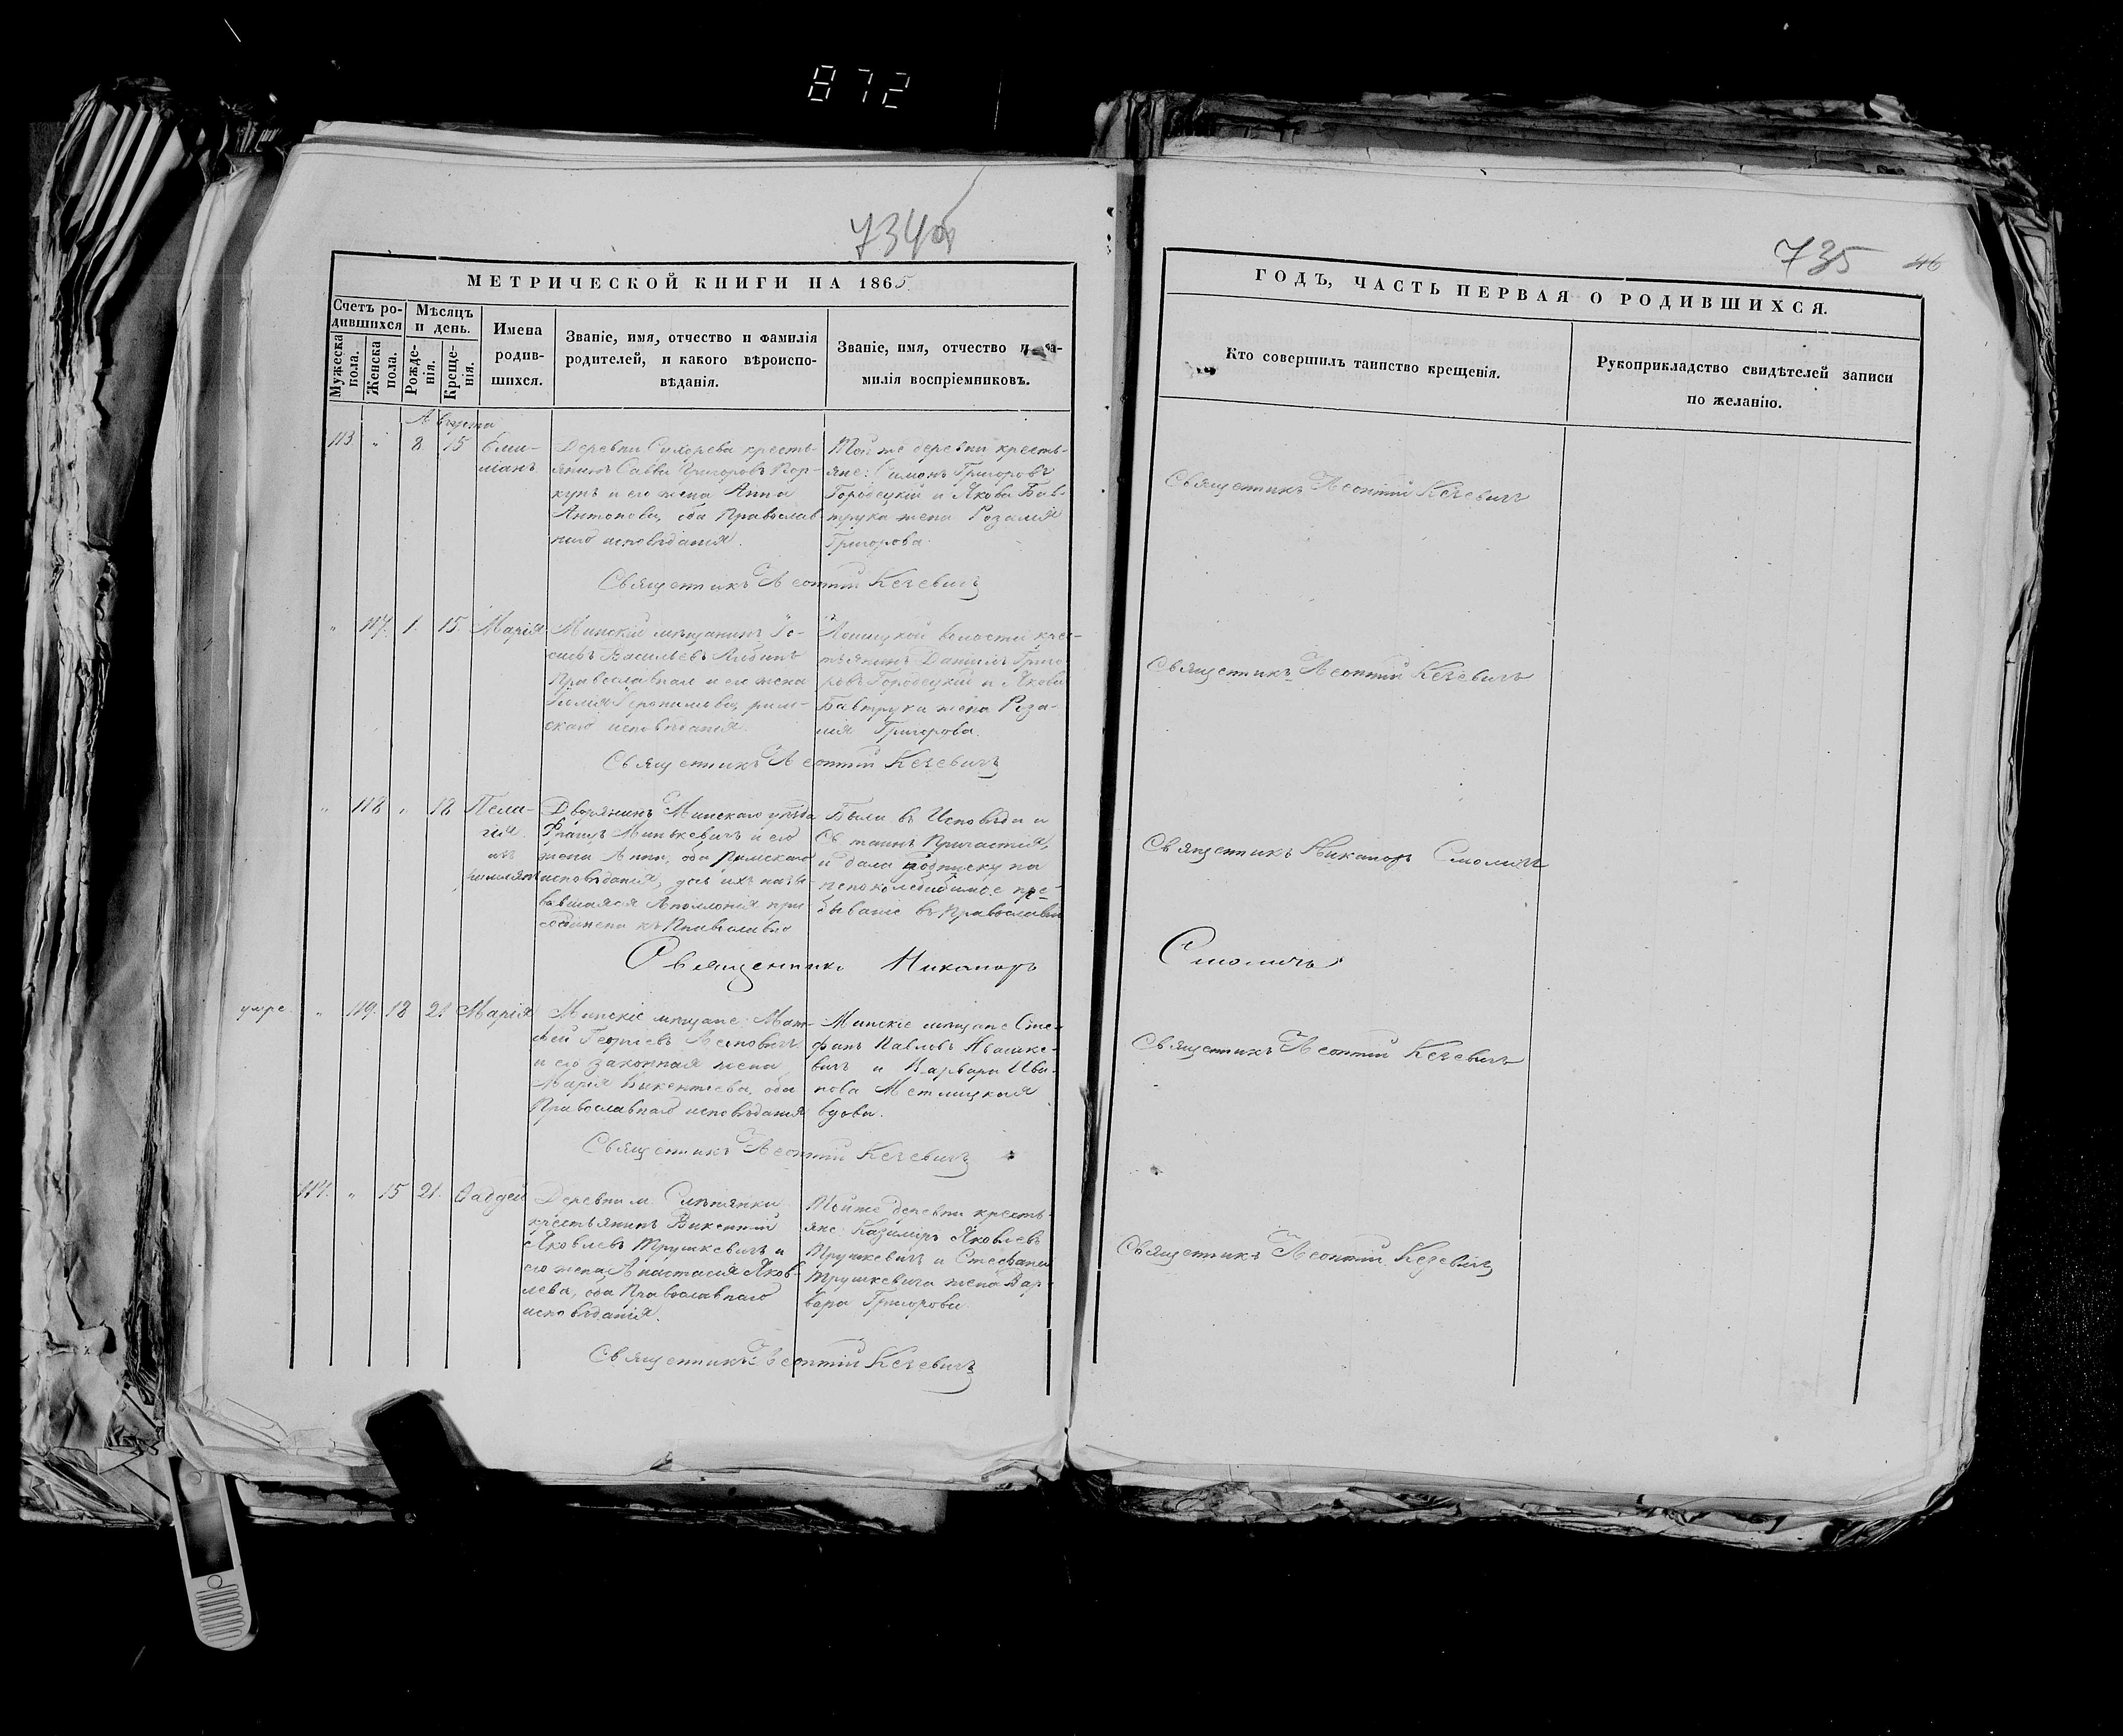 872
734об
МЕТРИЧЕСКОЙ КНИГИ НА 1865
Счетъ ро-
дившихся
Мѣсяцъ
и день.
Мужеска
пола.
Женска
пола.
Рожде-
нія.
Креще-
нія.
Имена
родив-
шихся.
Званіе, имя, отчество и фамилія
родителей, и какого вѣроиспо-
вѣданія.
Званіе, имя, отчество и фа-
милія воспріемниковъ.
Августа
113 " 8 15
Еми-
ліанъ
Деревни крестъ-
янинъ Савва Григоровъ Кор-
кунъ и его жена Анна
Антонова, оба Православ-
наго исповѣданія.
Той же деревни крестъ-
яне: Симонъ Григоровъ
Городецкій и Якова Бав-
трука жена Розалія
Григорова.
Священникъ Леонтій Кечевичъ
" 117. 1. 15. Марія
Минскій мѣщанинъ Іо-
сифъ Васильевъ
Православнаго и его жена
рим-
скаго исповѣданія.
волости крес-
тьянинъ Даніилъ Григо-
ровъ Городецкій и Якова
Бавтрука жена Роза-
лія Григорова.
Священникъ Леонтій Кечевичъ
" 118 " 18
Пела-
гія
изъ
римлянъ
Дворянинъ Минскаго уѣзда
Францъ Минькевичъ и его
жена Анна, оба Римскаго
исповѣданія, дочь ихъ назы-
вавшаяся Аполонія при
соединена къ Православію
Была въ Исповѣди и
Св. таинъ Причастія,
и дала подписку на
непоколебимое пре-
бываніе въ Православіи
Священникъ Никаноръ
умре. " 119. 18 21 Марія
Минскіе мѣщане: Мат-
ѳей Георгіевъ
и его законная жена
Марія Викентіева, оба
Православнаго исповѣданія
Минскіе мѣщане Сте-
фанъ Павловъ Ивашке-
вичъ и Варвара Ива-
нова Метлицкая
вдова.
Священникъ Леонтій Кечевичъ
114. " 15 21. Ѳаддей
Деревни м. Слѣпянки
крестьянинъ Викентій
Яковлевъ Трушкевичъ и
его жена Анастасія Яков-
лева, оба Православнаго
исповѣданія.
Той же деревни крестъ-
яне: Казиміръ Яковлевъ
Трушкевичъ и Стефана
Трушкевича жена Вар-
вара Григорова.
Священникъ Леонтій Кечевичъ
735 46
ГОДЪ, ЧАСТЬ ПЕРВАЯ О РОДИВШИХСЯ.
Кто совершилъ таинство крещенія.
Рукоприкладство свидѣтелей записи
по желанію.
Священникъ Леонтій Кечевичъ
Священникъ Леонтій Кечевичъ
Священникъ Никаноръ Смоличъ
Смоличъ
Священникъ Леонтій Кечевичъ
Священникъ Леонтій Кечевичъ